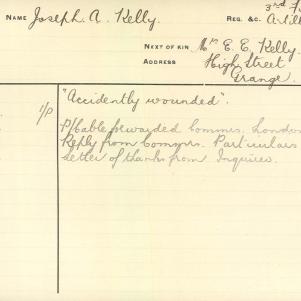 3rd F
NAME Joseph A. Kelly. REG. &C. Artill
NEXT OF KIN Mrs E. E. Kelly.
ADDRESS High Street
Grange
1/P "Accidently wounded".
P/Cable forwarded Commrs. London
Reply from Commrs. Particulars
Letter of thanks from Inquirer.